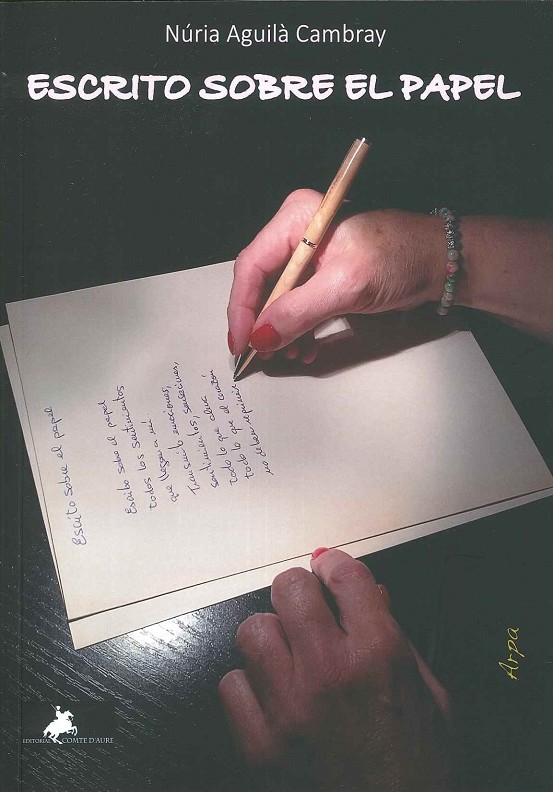 Núria Aguilà Cambray
ESCRITO SOBRE EL PAPEL
Escrito sobre el papel
Escribo sobre el papel
todos los sentimientos
que llegan a mí
Transmito emociones, sensaciones,
sentimientos, alma
todo lo que el corazón
todo lo que
no deben reprimir
Arpa
EDITORIAL COMTE D'AURE